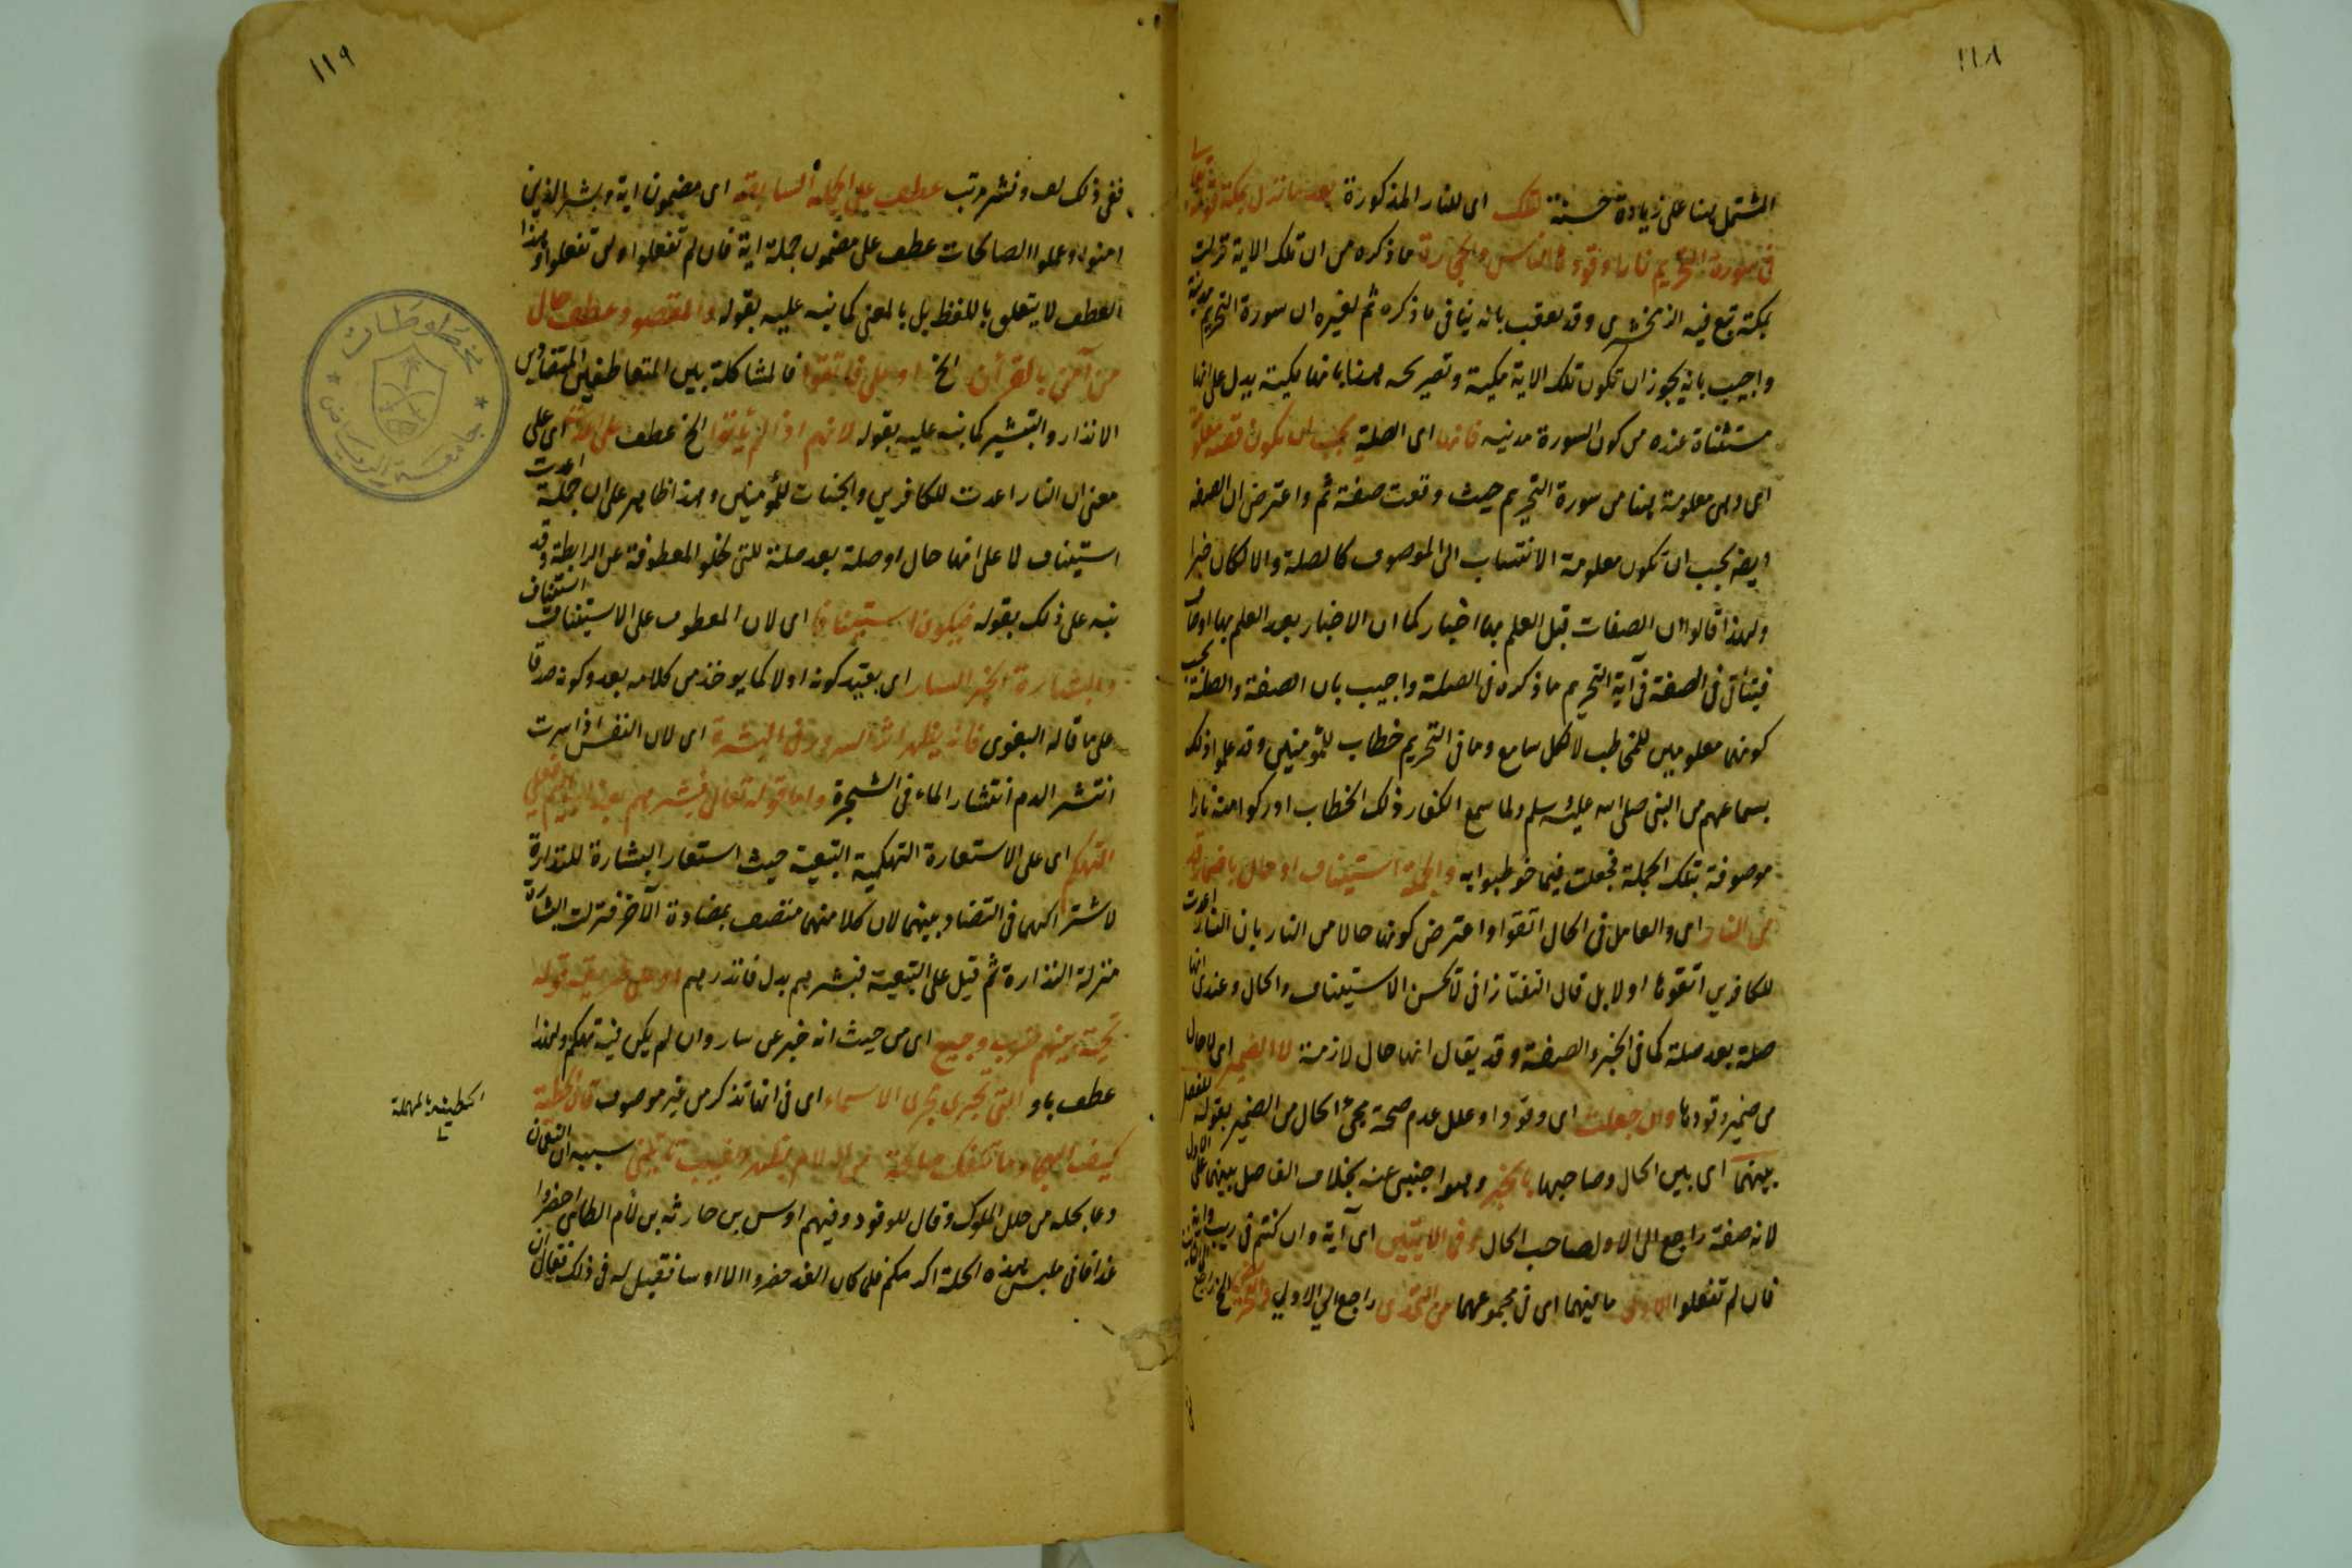 ١١٨
المشتمل هنا على زيادة خسة تلك اى للنار المذكورة بعد ما نزل بمكة قوله تعالى
فى سورة التحريم نارا وقودها الناس والحجارة ما ذكره من ان تلك الاية نزلت
بمكة تبع فيه الزمخشرى وقد تعقب بانه ينافى ما ذكره ثم لغيره ان سورة التحريم مدنية
واجيب بانه يجوز ان تكون تلك الاية مكية وتصريحه هنا بانها مكية يدل على انها
مستثناة عنده من كون السورة مدنيه فانها اى الصلة يجب ان تكون قصة معلومة
اى وهى معلومة هنا من سورة التحريم حيث وقعت صفة ثم واعترض ان الصفة
ايضا يجب ان تكون معلومة الانتساب الى الموصوف كالصلة والا لكان خبرا
ولهذا قالوا ان الصفات قبل العلم بها اخبار كما ان الاخبار بعد العلم بها اوصاف
فيتأتى فى الصفة فى آية التحريم ما ذكره فى الصلة واجيب بان الصفة والصلة يجب
كونهما معلومين للمخاطب لا لكل سامع وما فى التحريم خطاب للمؤمنين وقد علموا ذلك
بسماعهم من النبى صلى الله عليه وسلم ولما سمع الكفار ذلك الخطاب ادركوا منه نارا
موصوفة بتلك الجملة فجعلت فيما خوطبوا به والجملة استيناف او حال باضمار قد
من النار اى والعامل فى الحال اتقوا واعترض كونها حالا من النار بان النار اعدت
للكافرين اتقوها اولا بل قال التفتازانى لا تحسن الاستيناف والحال وعندى انها
صلة بعد صلة كما فى الخبر والصفة وقد يقال انها حال لازمة لا الضمير اى لا حال
من ضمير وقودها وان جعلت اى وقودا وعلل عدم صحة مجئ الحال من الضمير بقوله للفصل
بينهما اى بين الحال وصاحبها بالخبر وهو اجنبى عنه بخلاف الفاصل بينهما على الاول
لانه صفة راجع الى الاول صاحب الحال وفى الايتين اى آية وان كنتم فى ريب وآية
فان لم تفعلوا الاولى ما فيهما اى فى مجموعهما من التحدى راجع الى الاولى والتحريض الخ راجع الى
١١٩
ففى ذلك لف ونشر مرتب عطف على الجملة السابقة اى مضمون آية وبشر الذين
امنوا وعملوا الصالحات عطف على مضمون جملة اية فان لم تفعلوا ولن تفعلوا وهذا
العطف لا يتعلق باللفظ بل بالمعنى كما نبه عليه بقوله والمقصود عطف حال
من آمن بالقرآن الخ او على فاتقوا فالمشاكلة بين المتعاطفين المتضادين
الانذار والتبشير كما نبه عليه بقوله لانهم اذا لم يأتوا الخ عطف على اعدت اى على
معنى ان النار اعدت للكافرين والجنات للمؤمنين وهذا ظاهر على ان جملة اعدت
استيناف لا على انها حال او صلة بعد صلة للتى لخلو المعطوفة عن الرابطة وقد
نبه على ذلك بقوله فيكون استينافا اى لان المعطوف على الاستيناف استيناف
والبشارة الخبر السار اى بقيد كونه اولا كما يوخذ من كلامه بعد وكونه صدقا
على ما قاله البغوى فانه يظهر اثر السرور فى البشرة اى لان النفس اذا سرت
انتشر الدم انتشار الماء فى الشجرة واما قوله تعالى فبشرهم بعذاب اليم فعلى
التهكم اى على الاستعارة التهكمية التبعية حيث استعار البشارة للنذارة
لاشتراكهما فى التضاد بينهما لان كلا منهما متصف بمضادة الآخر فنزلت البشارة
منزلة النذارة ثم قيل على التبعية فبشرهم بدل فانذرهم او على طريقة قوله
تحية بينهم ضرب وجيع اى من حيث انه خبر عن سار وان لم يكن فيه تهكم ولهذا
عطف باو التى تجرى مجرى الاسماء اى فى انها تذكر من غير موصوف قال الحطيئة
كيف الهجاء وما تنفك صالحة من ال لام بظهر الغيب تأتينى سببه ان النعمان
دعا بحلة من حلل الملوك وقال للوفود وفيهم اوس بن حارثه بن لأم الطائى احضروا
غدا فانى ملبس هذه الحلة اكرمكم فلما كان الغد حضروا الا اوسا فقيل له فى ذلك فقال ان
الحطيئة بالمهملة
مخطوطات
جامعة الرياض